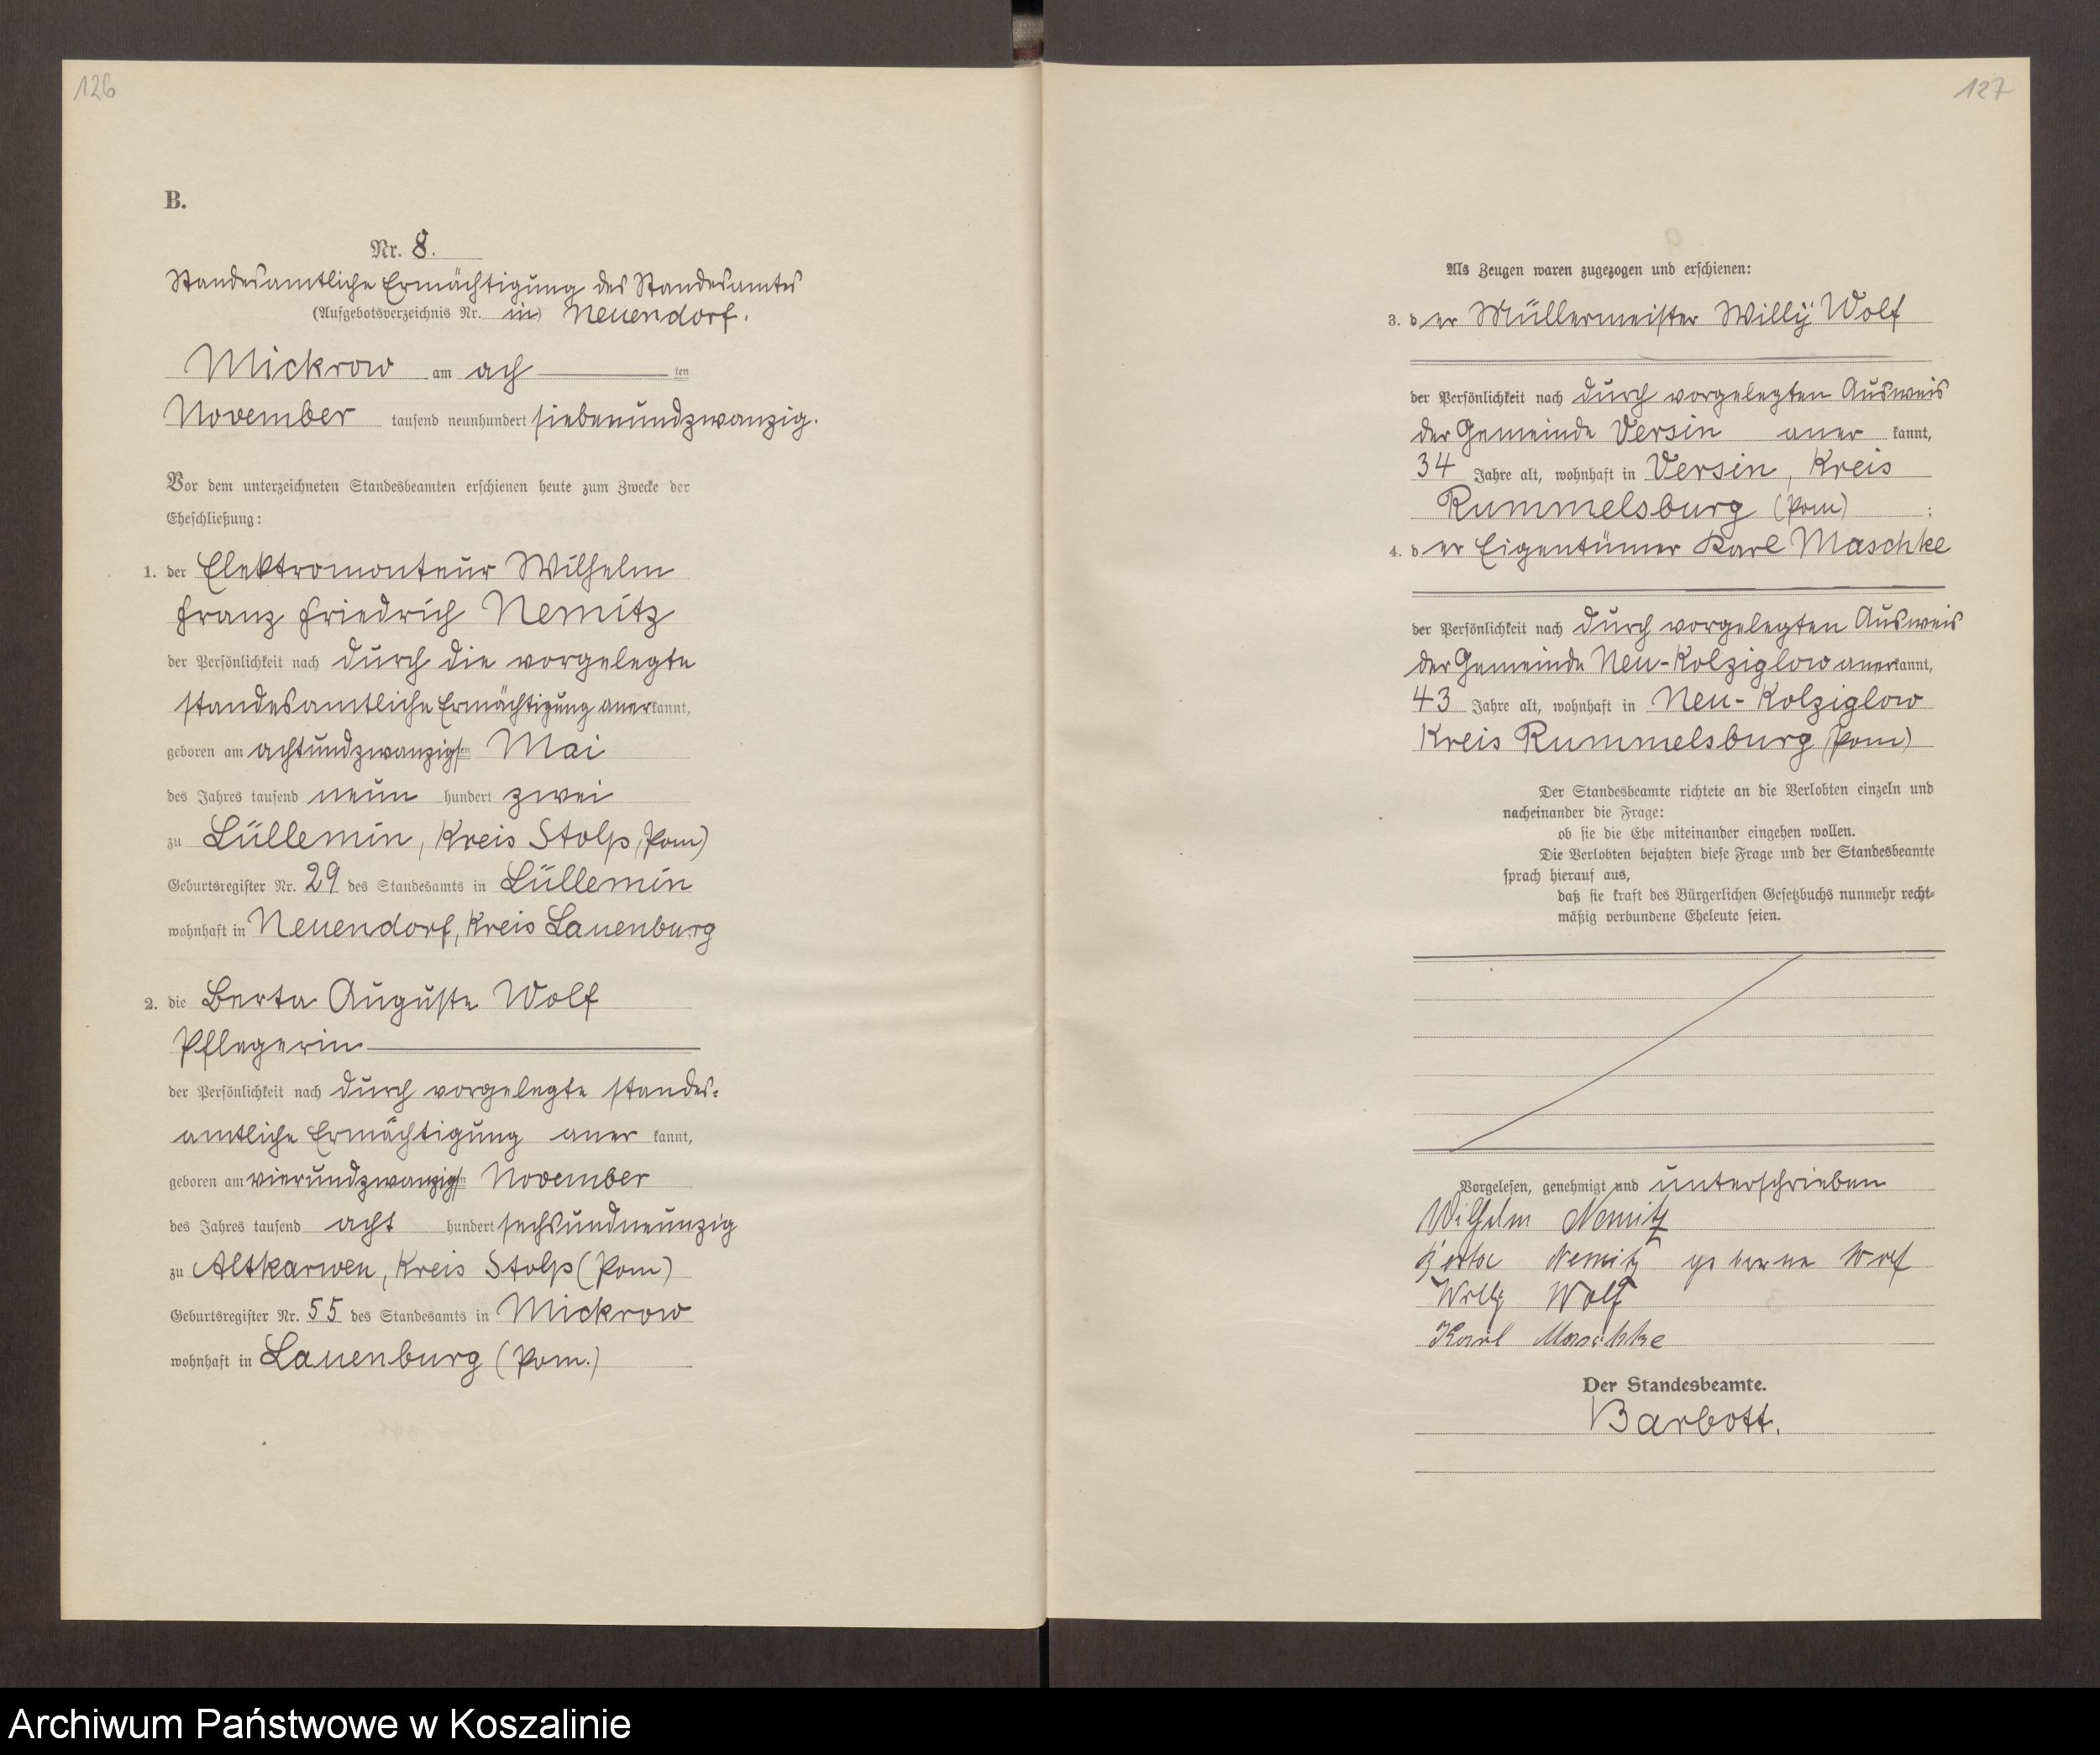 126
B.
Nr. 8.
Standesamtliche Ermächtigung des Standesamtes
(Aufgebotsverzeichnis Nr. in) Neuendorf.
Mickrow am ach ten
November tausend neunhundert siebenundzwanzig.
Vor dem unterzeichneten Standesbeamten erschienen heute zum Zwecke der
Eheschließung:
1. der Elektromonteur Wilhelm
Franz Friedrich Nemitz
der Persönlichkeit nach durch die vorgelegte
standesamtliche Ermächtigung anerkannt,
geboren am achtundzwanzigsten Mai
des Jahres tausend neun hundert zwei
zu Lüllemin, Kreis Stolp (Pom)
Geburtsregister Nr. 29 des Standesamts in Lüllemin
wohnhaft in Neuendorf, Kreis Lauenburg
2. die Berta Auguste Wolf
Pflegerin
der Persönlichkeit nach durch vorgelegte standes=
amtliche Ermächtigung aner kannt,
geboren am vierundzwanzigsten November
des Jahres tausend acht hundert sechsundneunzig
zu Altkarwen, Kreis Stolp (Pom)
Geburtsregister Nr. 55 des Standesamts in Mickrow
wohnhaft in Lauenburg (Pom.)
127
Als Zeugen waren zugezogen und erschienen:
3. der Müllermeister Willy Wolf
der Persönlichkeit nach durch vorgelegten Ausweis
der Gemeinde Versin aner kannt,
34 Jahre alt, wohnhaft in Versin, Kreis
Rummelsburg (Pom) ;
4. der Eigentümer Karl Maschke
der Persönlichkeit nach durch vorgelegten Ausweis
der Gemeinde Neu-Kolziglow anerkannt,
43 Jahre alt, wohnhaft in Neu-Kolziglow
Kreis Rummelsburg (Pom)
Der Standesbeamte richtete an die Verlobten einzeln und
nacheinander die Frage:
ob sie die Ehe miteinander eingehen wollen.
Die Verlobten bejahten diese Frage und der Standesbeamte
sprach hierauf aus,
daß sie kraft des Bürgerlichen Gesetzbuchs nunmehr recht=
mäßig verbundene Eheleute seien.
Vorgelesen, genehmigt und unterschrieben
Wilhelm Nemitz
Berta Nemitz geborene Wolf
Willy Wolf
Karl Maschke
Der Standesbeamte.
Barbott.
Archiwum Państwowe w Koszalinie